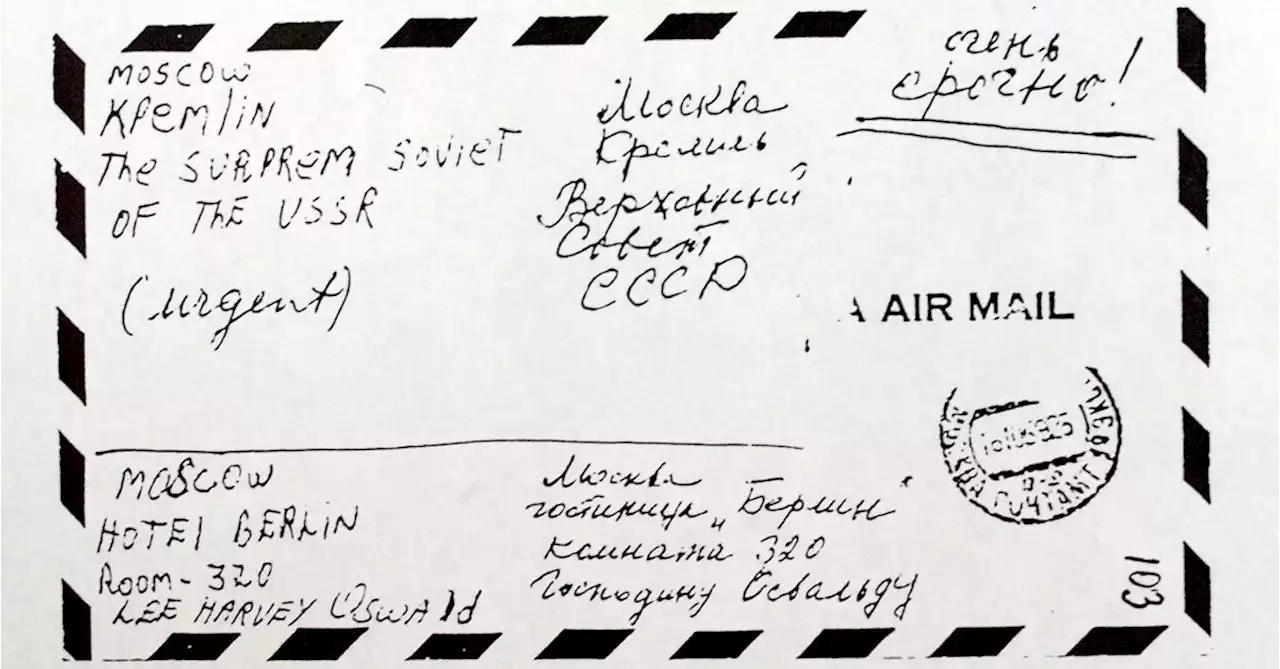 MOSCOW
KREMLIN
The SURPREM SOVIET
OF ThE USSR
(urgent)
Москва
Кремль
Верховный
Совет
СССР
очень
срочно!
AIR MAIL
MOSCOW
HOTEl BERLiN
ROOM - 320
LEE HARVEY OSWAld
Москва
гостиница „Берлин"
комната 320
Господину Освальду
103